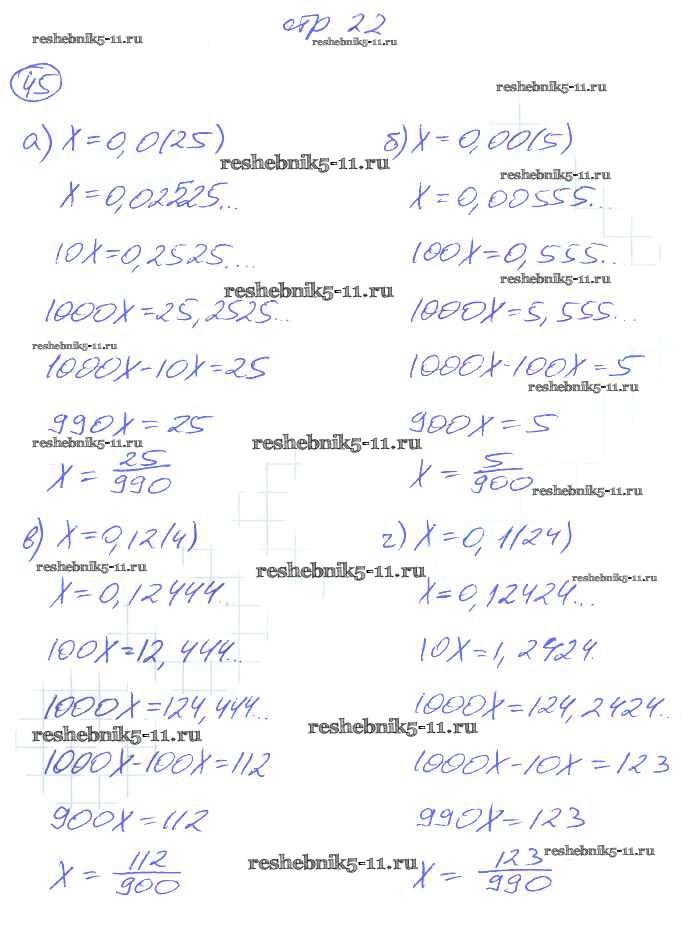 стр 22
reshebnik5-11.ru
reshebnik5-11.ru
45
reshebnik5-11.ru
а) X=0,0(25)
б) X=0,00(5)
reshebnik5-11.ru
reshebnik5-11.ru
X=0,02525...
X=0,00555...
10X=0,2525...
100X=0,555...
reshebnik5-11.ru
reshebnik5-11.ru
1000X=25,2525...
1000X=5,555...
reshebnik5-11.ru
1000X-10X=25
1000X-100X=5
reshebnik5-11.ru
990X=25
900X=5
reshebnik5-11.ru
reshebnik5-11.ru
X=25/990
X=5/900
reshebnik5-11.ru
в) X=0,12(4)
г) X=0,1(24)
reshebnik5-11.ru
reshebnik5-11.ru
reshebnik5-11.ru
X=0,12444...
X=0,12424...
100X=12,444...
10X=1,2424.
1000X=124,444...
1000X=124,2424...
reshebnik5-11.ru
reshebnik5-11.ru
1000X-100X=112
1000X-10X=123
900X=112
990X=123
reshebnik5-11.ru
reshebnik5-11.ru
X=112/900
X=123/990